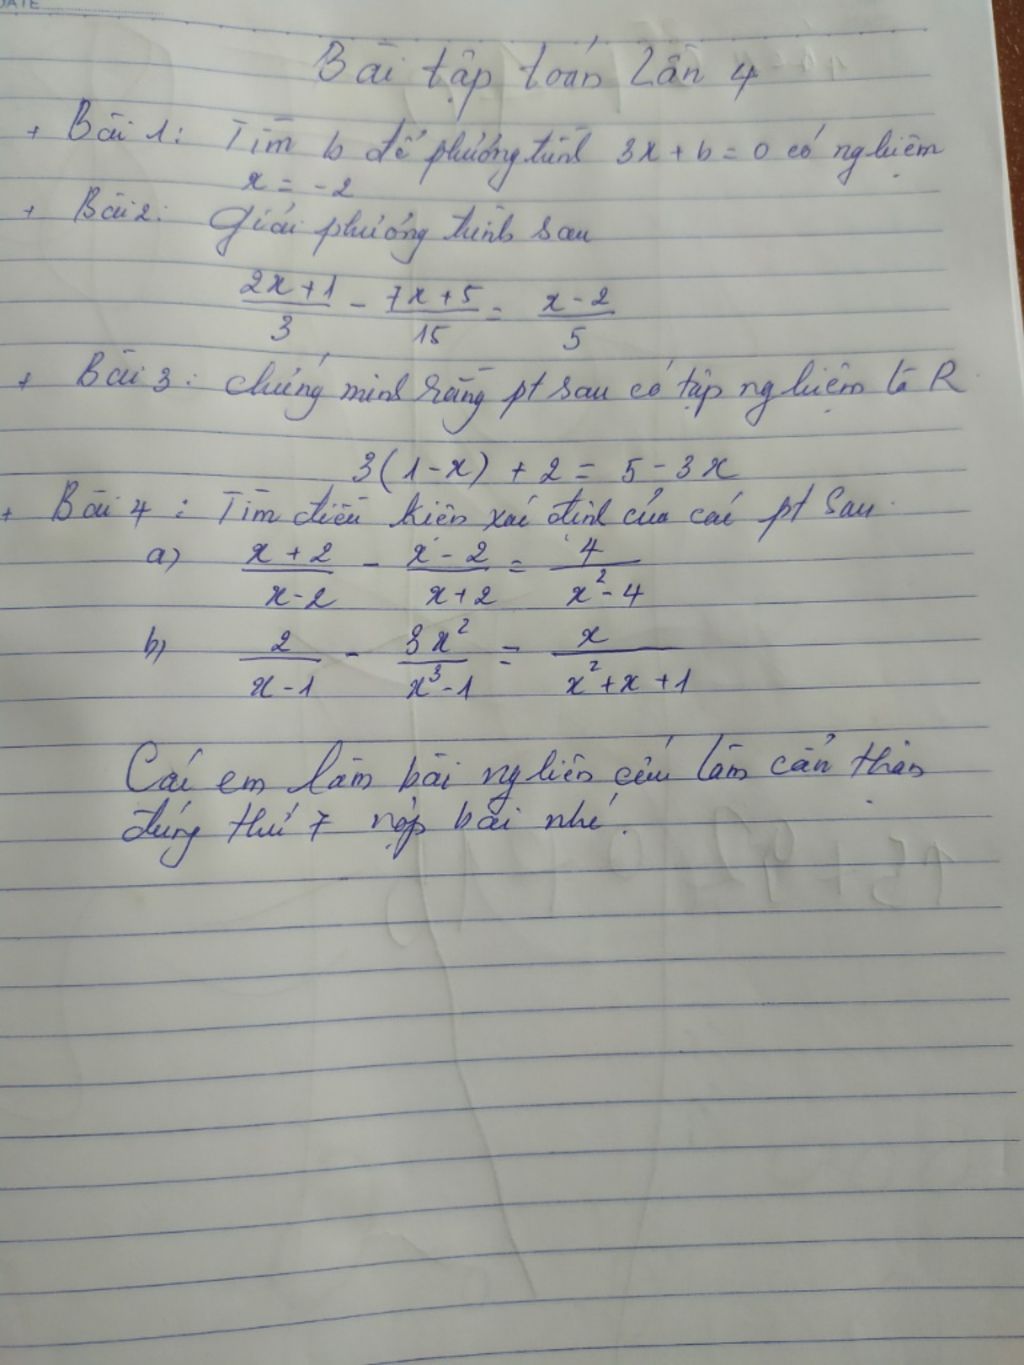 DATE
Bài tập toán lần 4
+ Bài 1: Tìm b để phương trình 3x + b = 0 có nghiệm
x = -2
+ Bài 2: Giải phương trình sau
(2x+1)/3 - (7x+5)/15 = (x-2)/5
+ Bài 3: Chứng minh rằng pt sau có tập nghiệm là R
3(1-x) + 2 = 5 - 3x
+ Bài 4: Tìm điều kiện xác định của các pt sau
a) (x+2)/(x-2) - (x-2)/(x+2) = 4/(x²-4)
b) 2/(x-1) - 3x²/(x³-1) = x/(x²+x+1)
Các em làm bài nghiên cứu làm cẩn thận
đúng thứ 7 nộp bài nhé.